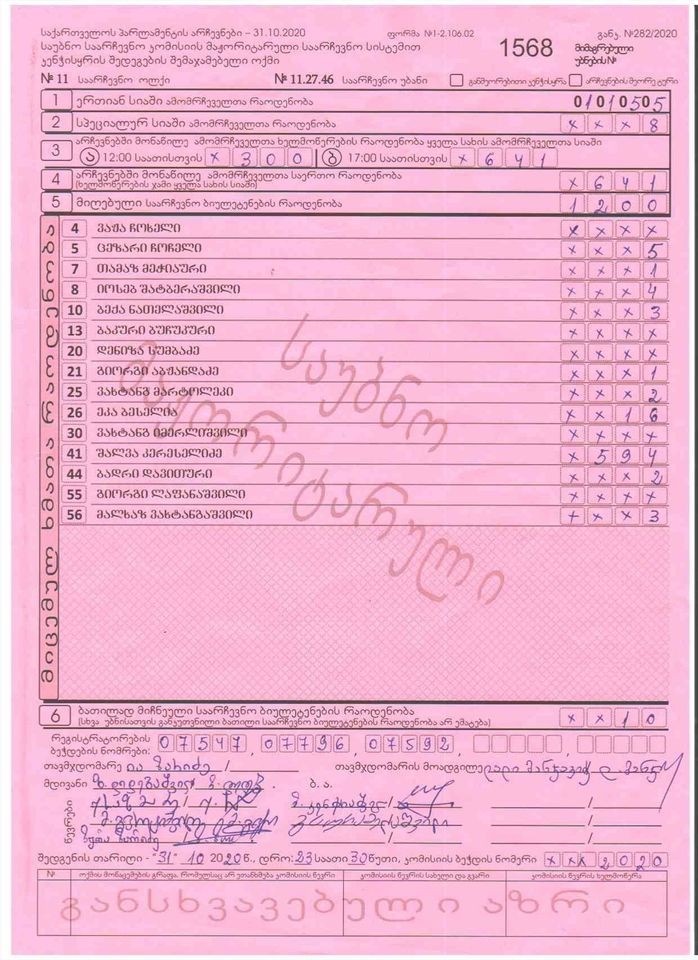 საქართველოს პარლამენტის არჩევნები – 31.10.2020 ფორმა №1-2.106.02 განკ. №282/2020
საუბნო საარჩევნო კომისიის მაჟორიტარული საარჩევნო სისტემით 1568 მიმაგრებული
კენჭისყრის შედეგების შემაჯამებელი ოქმი უბნების №
№ 11 საარჩევნო ოლქი № 11.27.46 საარჩევნო უბანი განმეორებითი კენჭისყრა არჩევნების მეორე ტური
1 ერთიან სიაში ამომრჩეველთა რაოდენობა 0101505
2 სპეციალურ სიაში ამომრჩეველთა რაოდენობა x x x 8
3 არჩევნებში მონაწილე ამომრჩეველთა ხელმოწერების რაოდენობა ყველა სახის ამომრჩეველთა სიაში
ა 12:00 საათისთვის x 3 0 0 ბ 17:00 საათისთვის x 6 4 1
4 არჩევნებში მონაწილე ამომრჩეველთა საერთო რაოდენობა x 6 4 1
(ხელმოწერების ჯამი ყველა სახის სიაში)
5 მიღებული საარჩევნო ბიულეტენების რაოდენობა 1 2 0 0
მიცემულ ხმათა რაოდენობა
4 ვაჟა ჩოხელი x x x x
5 ცეზარი ჩოჩელი x x x 5
7 თამაზ მეჭიაური x x x 1
8 იოსებ შატბერაშვილი x x x 4
10 ბექა ნათელაშვილი x x x 3
13 ბაკური ბუჩუკური x x x x
20 დენიზა სუმბაძე x x x x
21 გიორგი აბჟანდაძე x x x 1
25 ვახტანგ მარტოლეკი x x x 2
26 ეკა ბესელია x x 1 6
30 ვახტანგ იმერლიშვილი x x x x
41 შალვა კერესელიძე x 5 9 4
44 ბადრი დავითური x x x 2
55 გიორგი ლაფანაშვილი x x x x
56 მალხაზ ვახტანგაშვილი x x x 3
საუბნო
მაჟორიტარული
6 ბათილად მიჩნეული საარჩევნო ბიულეტენების რაოდენობა x x 1 0
(სხვა უბნისათვის განკუთვნილი ბათილი საარჩევნო ბიულეტენების რაოდენობა არ ემატება)
რეგისტრატორების
ბეჭდების ნომრები: 07547, 07796, 07592,
თავმჯდომარე თავმჯდომარის მოადგილე
მდივანი ბ. ა.
წევრები
შედგენის თარიღი - "31" 10 2020 წ., დრო: 23 საათი 30 წუთი, კომისიის ბეჭდის ნომერი x x x 2 0 2 0
№ ოქმის მონაცემების გრაფა, რომელსაც არ ეთანხმება კომისიის წევრი კომისიის წევრის სახელი და გვარი კომისიის წევრის ხელმოწერა
განსხვავებული აზრი